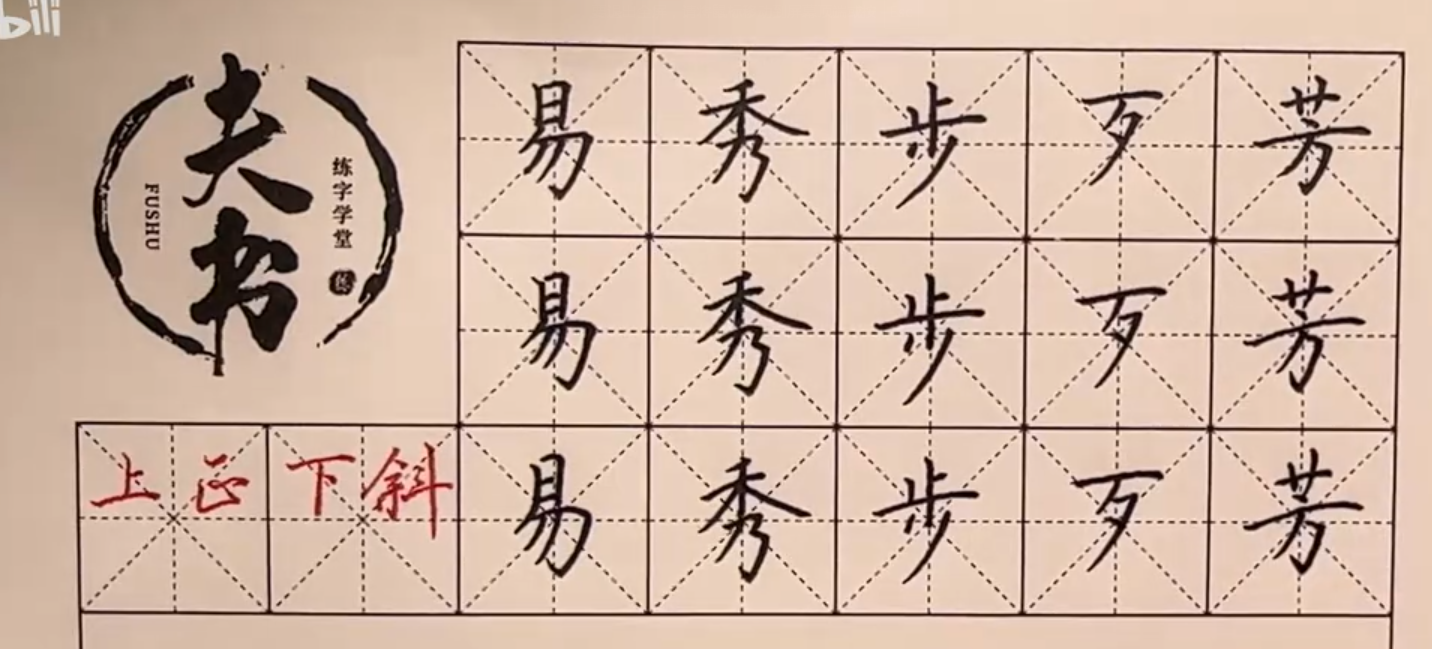 bili
夫书
练字学堂
FUSHU
易秀步歹芳
易秀步歹芳
上正下斜易秀步歹芳